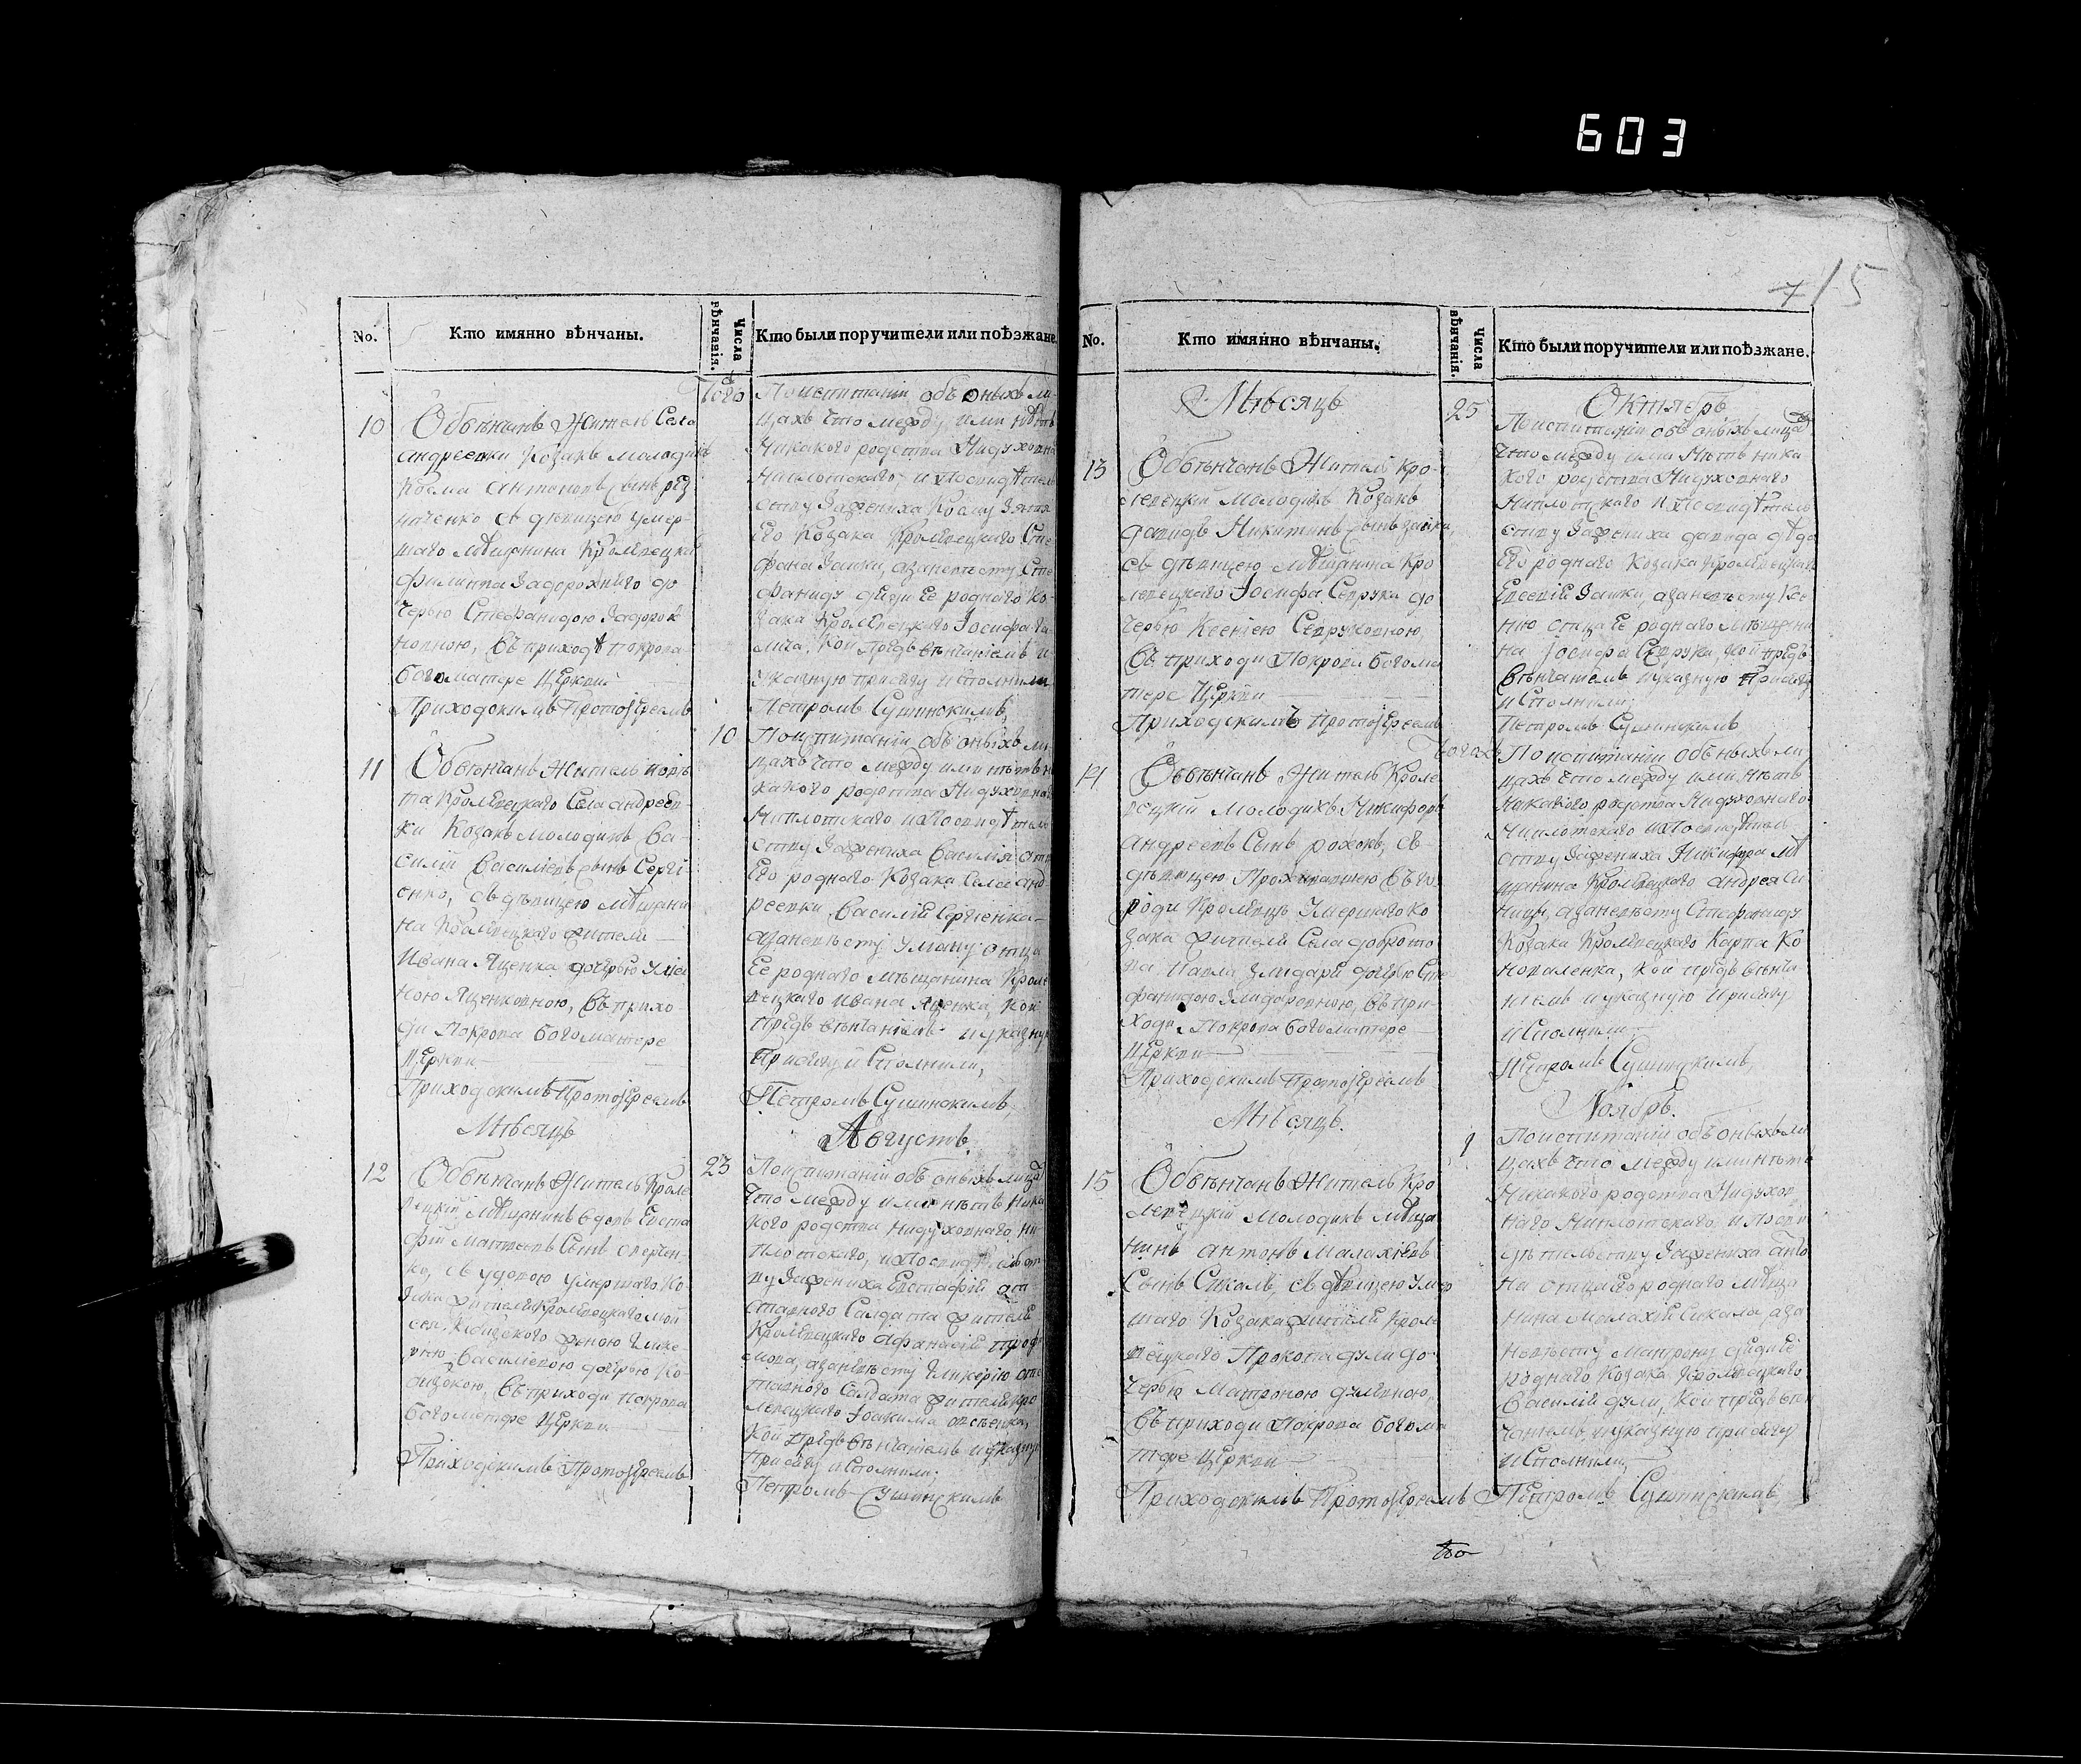 603
715
No.
Кто имянно вѣнчаны.
Числа вѣнчанія.
Кто были поручители или поѣзжане.
10
Обвѣнчанъ Житель Села
андреевки Козакъ молодикъ
Козма антоновъ сынъ
съ дѣвицею умер-
шаго мѣщанина Кролевецкаго
филиппа Задорожнего до
черью Стефанидою Задорож
новною, въ приходѣ покрова
богоматере церкви
Приходскимъ Протоіереемъ
Того
По испитаніи объ оныхъ ли-
цахъ что между ими нѣтъ
никакого родства ни духовна
ни плотскаго, и по свидѣтель
ству за жениха Козму зятя
его Козака Кролевецкаго Сте
фана Заики, а за невѣсту Сте
фаниду дяди ее родного ко-
зака Кролевецкого Іосифа
кои предъ вѣнчаніемъ и
указную присягу исполнили
Петромъ Сушинскимъ,
11
Обвѣнчанъ Житель повѣ
та Кролевецкаго Села андреев-
ки Козакъ молодикъ Ва-
силій Васильевъ сынъ Сергі-
енко, съ дѣвицею мѣщани
на Кролевецкаго жителя
Ивана Яценка дочерью Улія
ною Яценковною, въ прихо-
ди Покрова богоматере
церкви
Приходскимъ Протоіереемъ
10
По испитаніи объ оныхъ ли-
цахъ что между ими нѣтъ ни
какого родства ни духовнаго
ни плотскаго и по свидѣтель
ству за жениха Василія
его родного Козака Села анд
реевки Василій Сергіенка
а за невѣсту уляну отца
ее родного мѣщанина Кроле
вецкаго Ивана Яценка, кои
предъ вѣнчаніемъ и указную
присягу исполнили,
Петромъ Сушинскимъ
Мѣсяцъ
Августъ.
12
Обвѣнчанъ Житель Кроле
вецкій мѣщанинъ вдовъ Евста
фій Матвеевъ Сынъ
ко, съ удовою умершаго Ко
зака жителя Кролевецкаго
женою Глике
ріею Васильевою дочерью
въ приходи покрова
богоматере церкви
Приходскимъ Протоіереемъ
23
По испитаніи объ оныхъ лицахъ
что между ими нѣтъ ника
кого родства ни духовнаго ни
плотскаго, и по свидѣтельст
ву за жениха Евстафія от
ставного Салдата жителя
Кролевецкаго афанасія
а за невѣсту гликерію отс
тавного Салдата жителя Кро
левецкаго Іоакима
кои предъ вѣнчаніемъ и указную
присягу исполнили,
Петромъ Сушинскимъ
No.
Кто имянно вѣнчаны.
Числа вѣнчанія.
Кто были поручители или поѣзжане.
Мѣсяцъ
Октябрь
13
Обвѣнчанъ Житель кро-
левецкій молодикъ Козакъ
давидъ Никитинъ сынъ заика,
съ дѣвицею мѣщанина Кро
левецкаго Іосифа Севрука до
черью Ксеніею Севруковною,
въ приходи Покрова богома
тере церкви
Приходскимъ Протоіереемъ
25
По испитаніи объ оныхъ лицахъ
что между ими нѣтъ ника
кого родства ни духовнаго
ни плотскаго и по свидѣтель
ству за жениха давида дѣда
его родного Козака Кролевецкаго
Евсевія Заики, а за невѣсту Ксе
нию отца ее родного мѣщани
на Іосифа Севрука, кои предъ
вѣнчаніемъ и указную присягу
исполнили,
Петромъ Сушинскимъ
14
Обвѣнчанъ Житель Кроле
вецкій молодикъ Никифоръ
андреевъ Сынъ рожокъ, съ
дѣвицею Проживавшею въ го
роди Кролевцѣ умершаго Ко
зака жителя Села добрато
ва Павла Злидаря дочерью Сте
фанидою Злидаровною, въ при-
ходи Покрова богоматере
церкви
Приходскимъ Протоіереемъ
Того жъ
По испитаніи объ оныхъ ли
цахъ что между ими нѣтъ
никакого родства ни духовнаго
ни плотскаго и по свидѣтель
ству за жениха Никифора мѣ
щанина Кролевецкаго андрея
а за невѣсту Стефаниду
Козака Кролевецкаго Карпа Ко
новаленка, кои предъ вѣнча
ніемъ и указную присягу
исполнили
Петромъ Сушинскимъ,
Мѣсяцъ.
Ноябрь.
15
Обвѣнчанъ Житель Кро
левецкій молодикъ мѣща
нинъ антонъ Малахіевъ
Сынъ Сикалъ, съ дѣвицею умер
шаго Козака жителя Кроле
вецкаго Прокопа дули до-
черью Матроною дулевною,
въ приходи Покрова богома
тере церкви
Приходскимъ Протоіереемъ
1
По испитаніи объ оныхъ ли
цахъ что между ими нѣтъ
никакого родства ни духов
наго ни плотскаго, и по сви
дѣтельству за жениха анто
на отца его родного мѣща
нина Малахія Сикала, а за
невѣсту Матрону дяди ее
родного Козака Кролевецкаго
Василія дули, кои предъ вѣн
чаніемъ и указную присягу
исполнили,
Петромъ Сушинскимъ